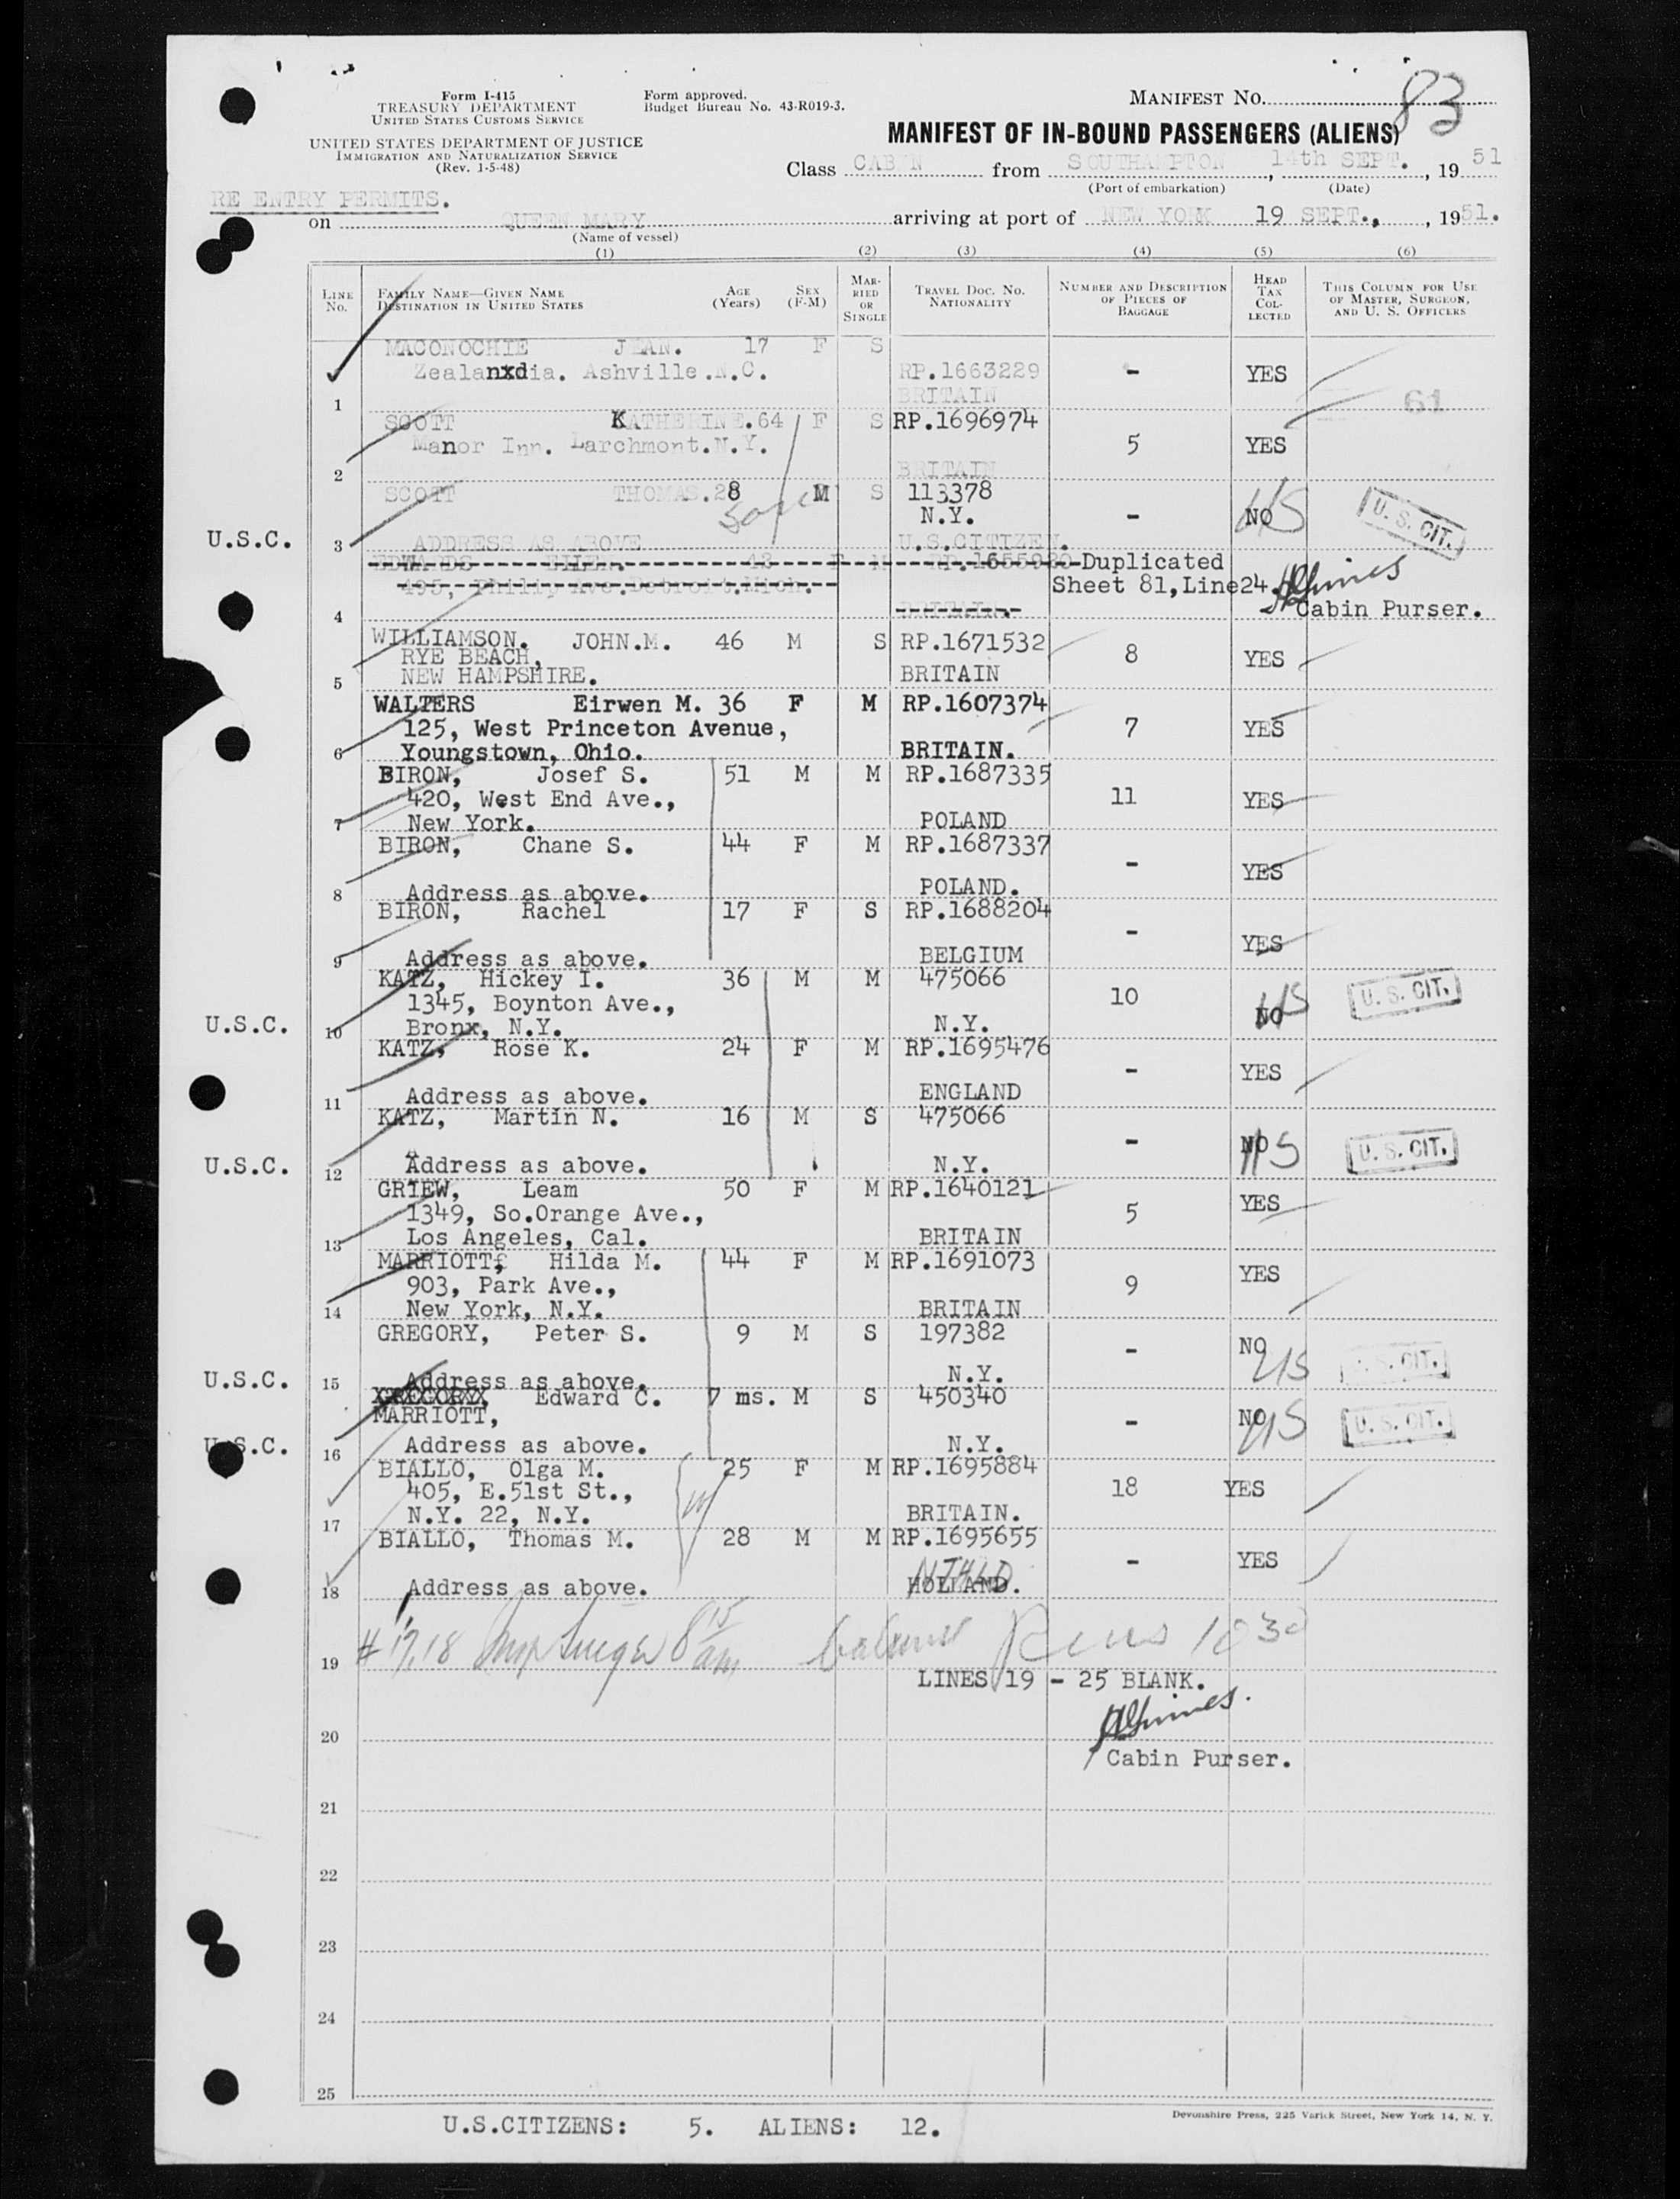 Form I-415
TREASURY DEPARTMENT
UNITED STATES CUSTOMS SERVICE
UNITED STATES DEPARTMENT OF JUSTICE
IMMIGRATION AND NATURALIZATION SERVICE
(Rev. 1-5-48)
Form approved.
Budget Bureau No. 43-R019-3.
MANIFEST NO. 83
MANIFEST OF IN-BOUND PASSENGERS (ALIENS)
Class CABIN from SOUTHAMPTON, 14th SEPT., 19 51
(Port of embarkation) (Date)
RE ENTRY PERMITS.
on QUEEN MARY arriving at port of NEW YORK 19 SEPT., 1951.
(Name of vessel)
(1) (2) (3) (4) (5) (6)
LINE NO.
FAMILY NAME—GIVEN NAME
DESTINATION IN UNITED STATES
AGE (Years)
SEX (F-M)
MARRIED OR SINGLE
TRAVEL DOC. NO.
NATIONALITY
NUMBER AND DESCRIPTION OF PIECES OF BAGGAGE
HEAD TAX COLLECTED
THIS COLUMN FOR USE OF MASTER, SURGEON, AND U. S. OFFICERS
MACONOCHIE JEAN. 17 F S
Zealanxdia. Ashville.N.C. RP.1663229 - YES
1 BRITAIN 61
SCOTT KATHERINE. 64 F S RP.1696974
Manor Inn. Larchmont.N.Y. 5 YES
2 BRITAIN
SCOTT THOMAS. 28 M S 113378
son N.Y. - NO US U. S. CIT.
U.S.C. 3 ADDRESS AS ABOVE U.S.CITIZEN.
EDWARDS 43 F M RP.1655980 Duplicated
495, Philip Ave.Detroit.Mich. Sheet 81,Line24.
4 BRITAIN. Cabin Purser.
WILLIAMSON. JOHN.M. 46 M S RP.1671532
RYE BEACH, 8 YES
5 NEW HAMPSHIRE. BRITAIN
WALTERS Eirwen M. 36 F M RP.1607374
125, West Princeton Avenue, 7 YES
6 Youngstown, Ohio. BRITAIN.
BIRON, Josef S. 51 M M RP.1687335
420, West End Ave., 11 YES
7 New York. POLAND
BIRON, Chane S. 44 F M RP.1687337
- YES
8 Address as above. POLAND.
BIRON, Rachel 17 F S RP.1688204
- YES
9 Address as above. BELGIUM
KATZ, Hickey I. 36 M M 475066
1345, Boynton Ave., 10 NO US U. S. CIT.
U.S.C. 10 Bronx, N.Y. N.Y.
KATZ, Rose K. 24 F M RP.1695476
- YES
11 Address as above. ENGLAND
KATZ, Martin N. 16 M S 475066
- NO US U. S. CIT.
U.S.C. 12 Address as above. N.Y.
GRIEW, Leam 50 F M RP.1640121
1349, So.Orange Ave., 5 YES
13 Los Angeles, Cal. BRITAIN
MARRIOTT, Hilda M. 44 F M RP.1691073
903, Park Ave., 9 YES
14 New York, N.Y. BRITAIN
GREGORY, Peter S. 9 M S 197382
- NO US U. S. CIT.
U.S.C. 15 Address as above. N.Y.
XGREGORYX Edward C. 7 ms. M S 450340
MARRIOTT, - NO US U. S. CIT.
U.S.C. 16 Address as above. N.Y.
BIALLO, Olga M. 25 F M RP.1695884
405, E.51st St., 18 YES
17 N.Y. 22, N.Y. BRITAIN.
BIALLO, Thomas M. 28 M M RP.1695655
- YES
18 Address as above. HOLLAND.
# 17,18 8 15 am 1030
19
LINES 19 - 25 BLANK.
20
Cabin Purser.
21
22
23
24
25
Devonshire Press, 225 Varick Street, New York 14, N. Y.
U.S.CITIZENS: 5. ALIENS: 12.